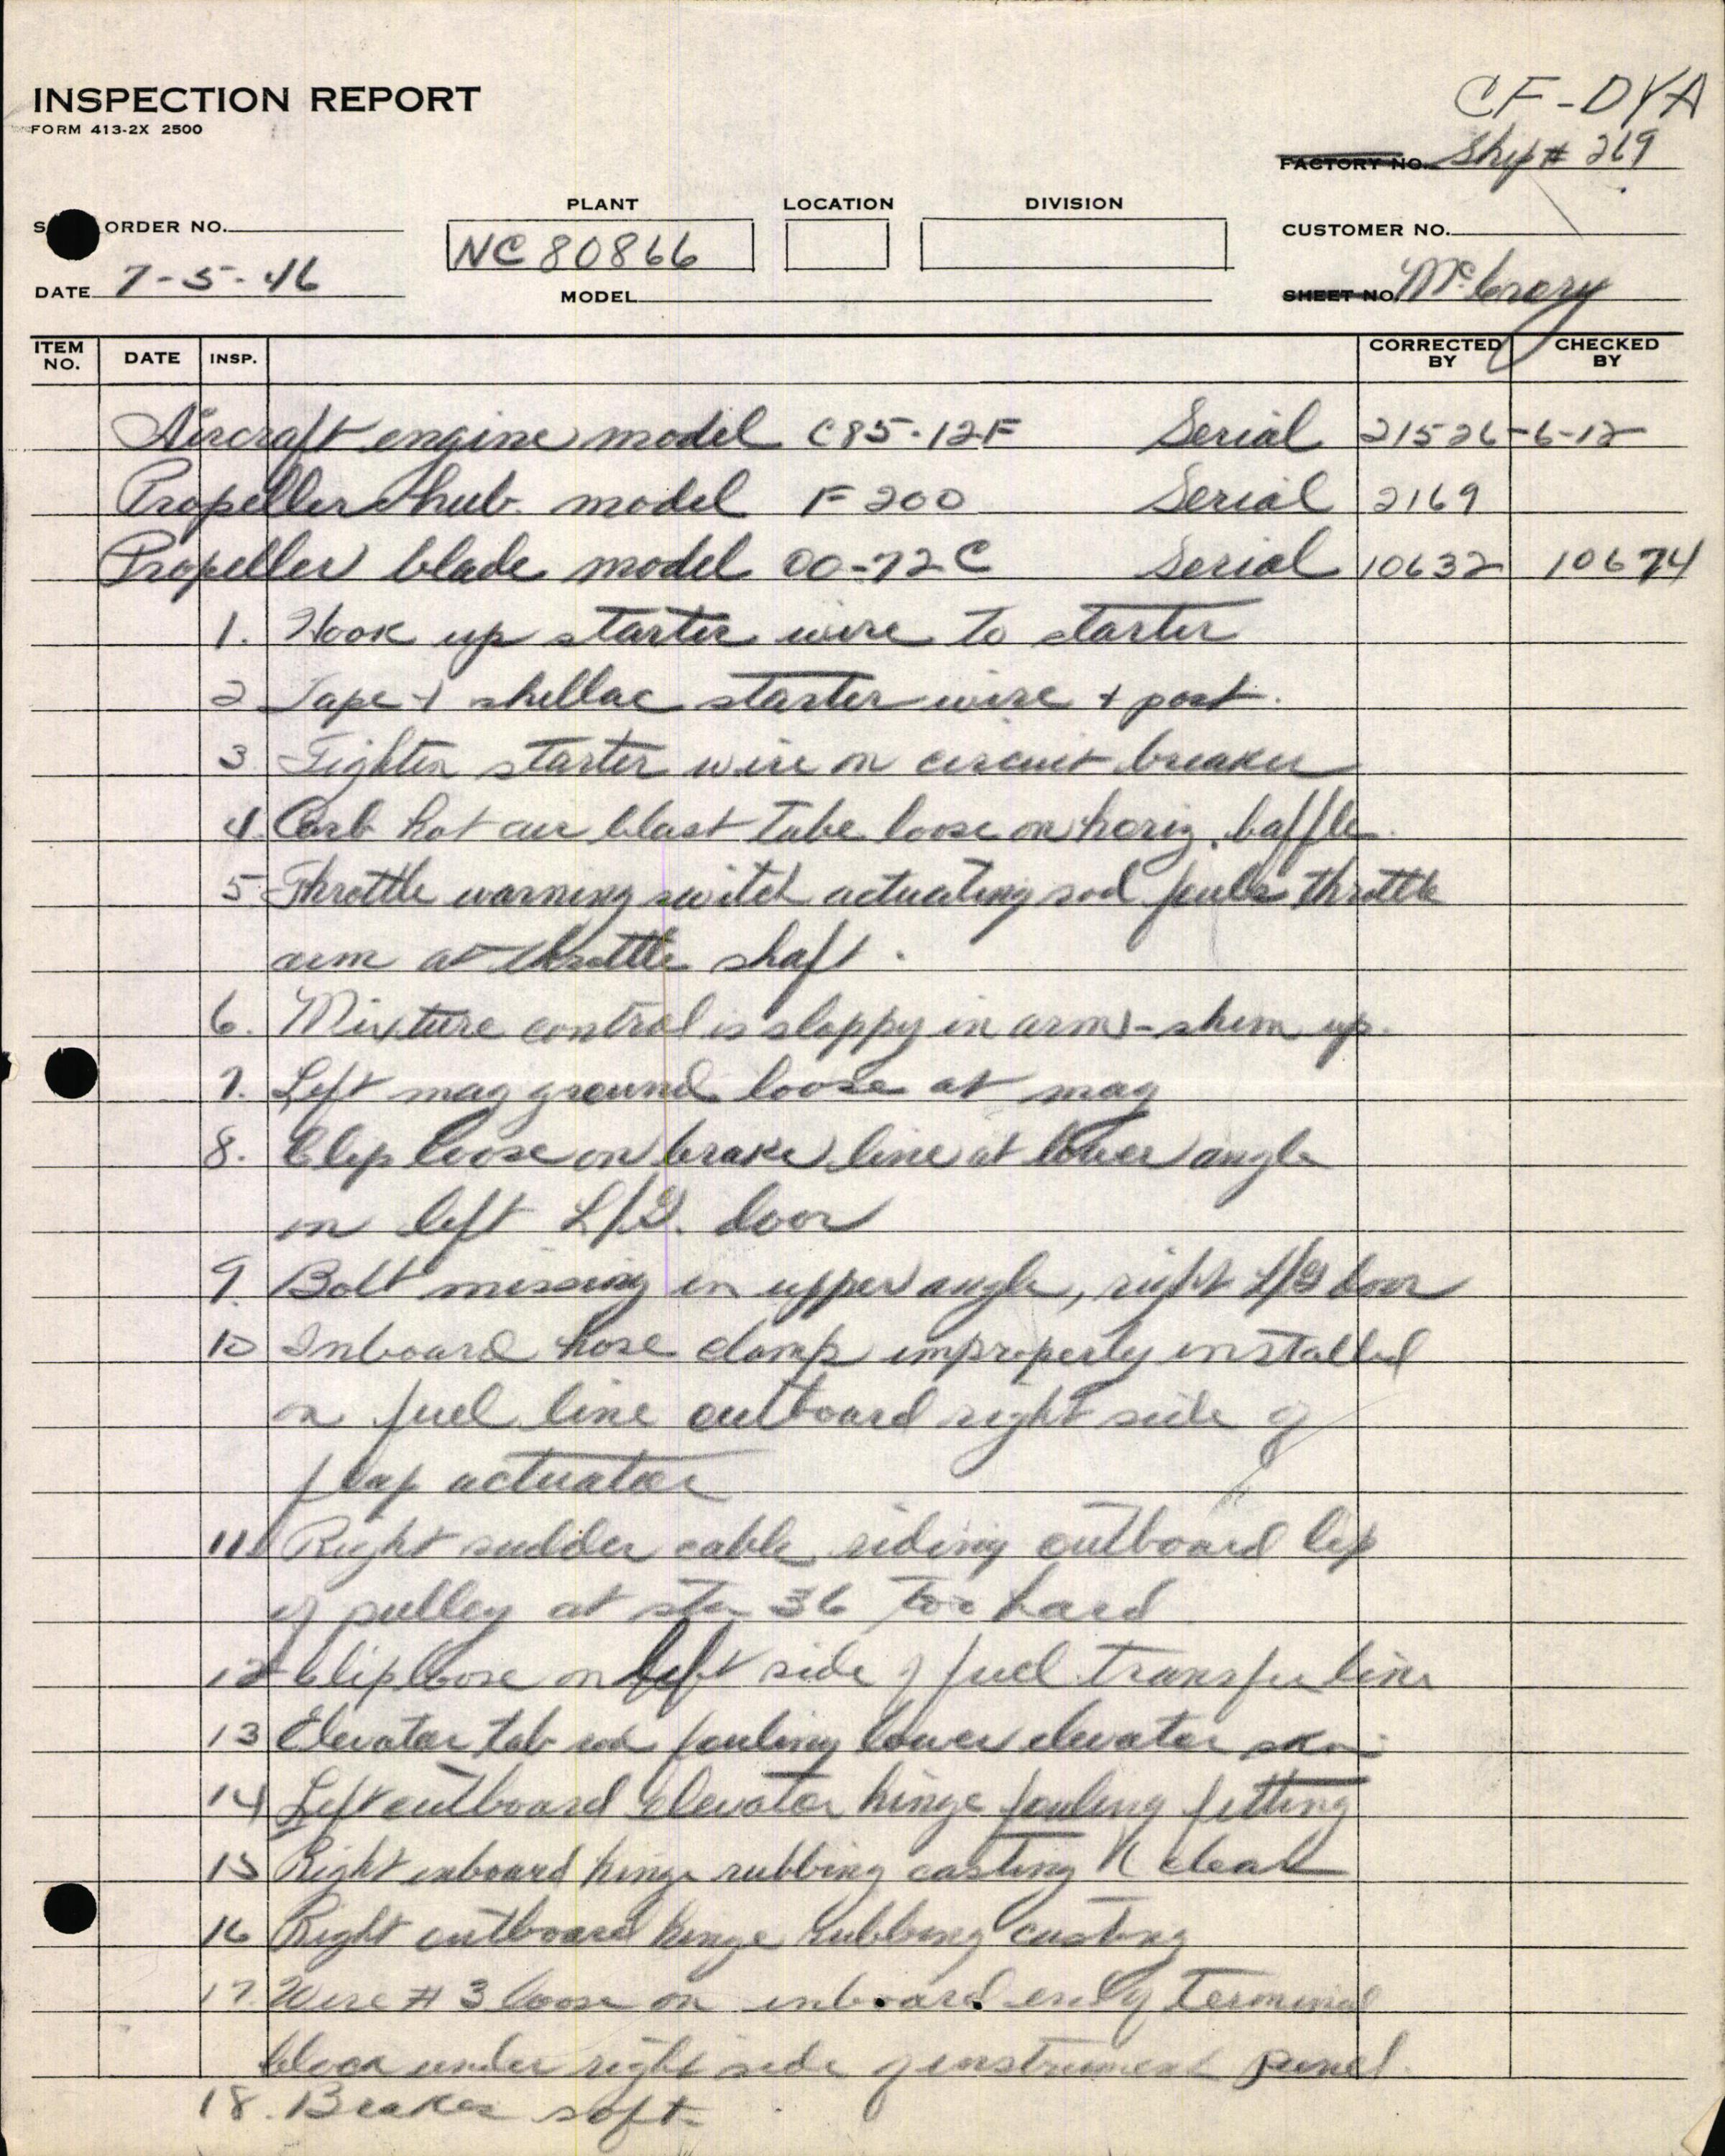 CF-DYA
INSPECTION REPORT
FORM 413-2X 2500
FACTORY NO. Ship # 269
PLANT LOCATION DIVISION
S ORDER NO. NC 80866 CUSTOMER NO.
DATE 7-5-46 MODEL SHEET NO. McCrory
ITEM NO. DATE INSP. CORRECTED BY CHECKED BY
Aircraft engine model C85-12F Serial 21526-6-12
Propeller hub model F 200 Serial 2169
Propeller blade model 00-72C Serial 10632 10674
1. Hook up starter wire to starter
2 Tape + shellac starter wire + post.
3 Tighten starter wire on circuit breaker
4. Carb hot air blast tube loose on horiz. baffle.
5 Throttle warning switch actuating rod fouls throttle
arm at throttle shaft.
6. Mixture control is sloppy in arm - shim up.
7. Left mag ground loose at mag
8. Clip loose on brake line at lower angle
in left L/G. door
9. Bolt missing in upper angle, right L/G door
10 Inboard hose clamp improperly installed
on fuel line outboard right side of
flap actuator
11 Right rudder cable riding outboard lip
of pulley at sta 36 too hard
12 Clip loose on left side of fuel transfer line
13 Elevator tab rod fouling lower elevator skin
14 Left outboard elevator hinge fouling fitting
15 Right inboard hinge rubbing casting clear
16 Right outboard hinge rubbing casting
17. Wire # 3 loose on inboard end of terminal
block under right side of instrument panel.
18. Brakes soft